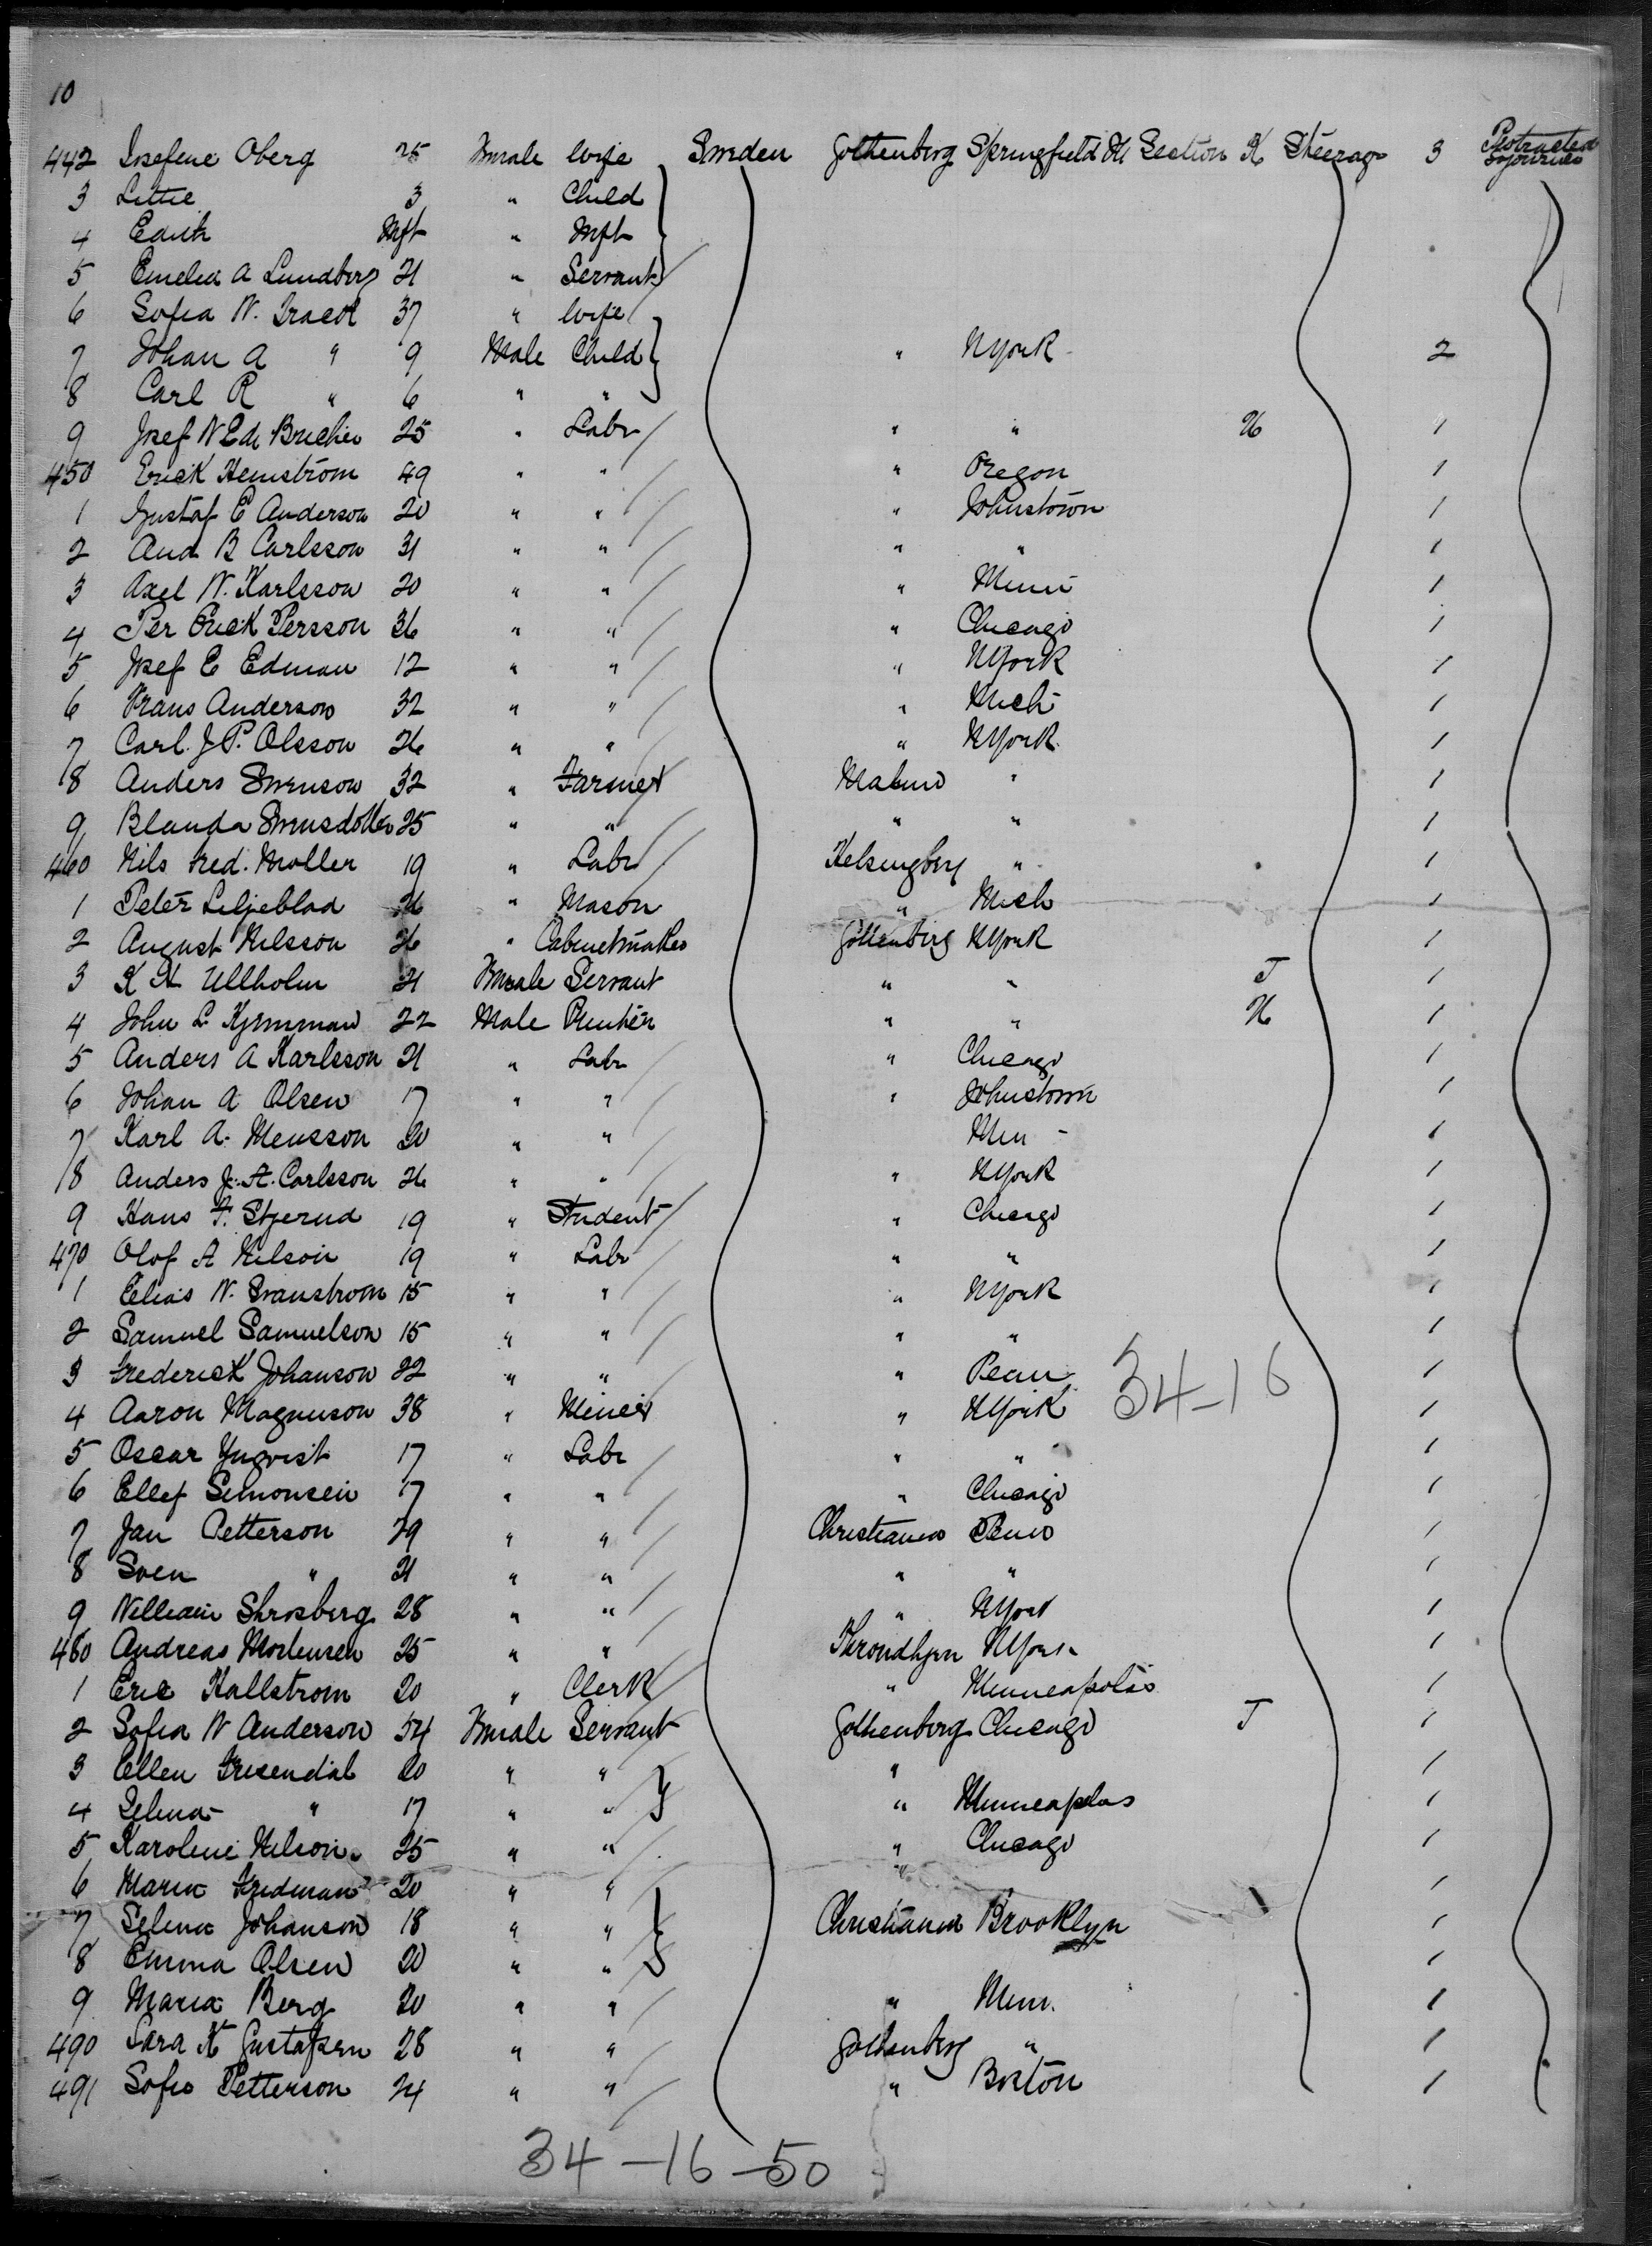 10
442 Josefine Oberg 25 Female Wife Sweden Gothenberg Springfield Ill Section K Steerage 3 Protracted Sojourners
3 Lettie 3 " Child
4 Edith Inft " Inft
5 Emelia A Lundberg 21 " Servant
6 Sofia W. 37 " Wife
7 Johan A " 9 Male Child " NYork 2
8 Carl R " 6 " "
9 Josef N Ed 25 " Labr " " H 1
450 Erick Hemström 49 " " " Oregon 1
1 Gustaf E Anderson 20 " " " Johnstown 1
2 And B Carlsson 31 " " " " 1
3 Axel W. Karlsson 20 " " " Minn 1
4 Per Erick Persson 36 " " " Chicago 1
5 Josef E Edman 12 " " " NYork 1
6 Frans Anderson 32 " " " Mich 1
7 Carl J P. Olsson 26 " " " NYork 1
8 Anders Swenson 32 " Farmer Malmo " 1
9 Blanda Swensdotter 25 " " " " 1
460 Nils Fred. Moller 19 " Labr Helsingborg " 1
1 Peter Liljeblad 26 " Mason " Mich 1
2 August Nilsson 26 " Cabinetmaker Gothenberg NYork 1
3 K H Ullholm 21 Female Servant " " J 1
4 John L 22 Male Printer " " H 1
5 Anders A Karlsson 21 " Labr " Chicago 1
6 Johan A Olsen 17 " " " Johnstown 1
7 Karl A. Mensson 20 " " Min - 1
8 Anders J. A. Carlsson 26 " " " NYork 1
9 Hans F. Stjernd 19 " Student " Chicago 1
470 Olof A Nilson 19 " Labr " " 1
1 Elias N. Granstrom 15 " " " NYork 1
2 Samuel Samuelson 15 " " " " 1
3 Frederick Johanson 22 " " " Penn 1
34-16
4 Aaron Magnuson 38 " Miner " NYork 1
5 Oscar Ynqvist 17 " Labr " " 1
6 Ellef Simonsen 17 " " " Chicago 1
7 Jan Petterson 29 " " Christiania Penn 1
8 Sven " 21 " " " " 1
9 William Shrosberg 28 " " " NYork 1
480 Andreas Mortensen 25 " " Throndhjem NYork 1
1 Eric Kallstrom 20 " Clerk " Minneapolis 1
2 Sofia W Anderson 54 Female Servant Gothenberg Chicago J 1
3 Ellen Frisendal 20 " " " 1
4 Selma " 17 " " " Minneapolas 1
5 Karoline Nilson 25 " " " Chicago 1
6 Maria Fredman 20 " " " 1
7 Selma Johanson 18 " " Christiania Brooklyn 1
8 Emma Olsen 20 " " 1
9 Maria Berg 20 " " " Minn. 1
490 Sara K Gustafsen 28 " " Gothenberg " 1
491 Sofia Petterson 24 " " " Boston 1
34-16-50